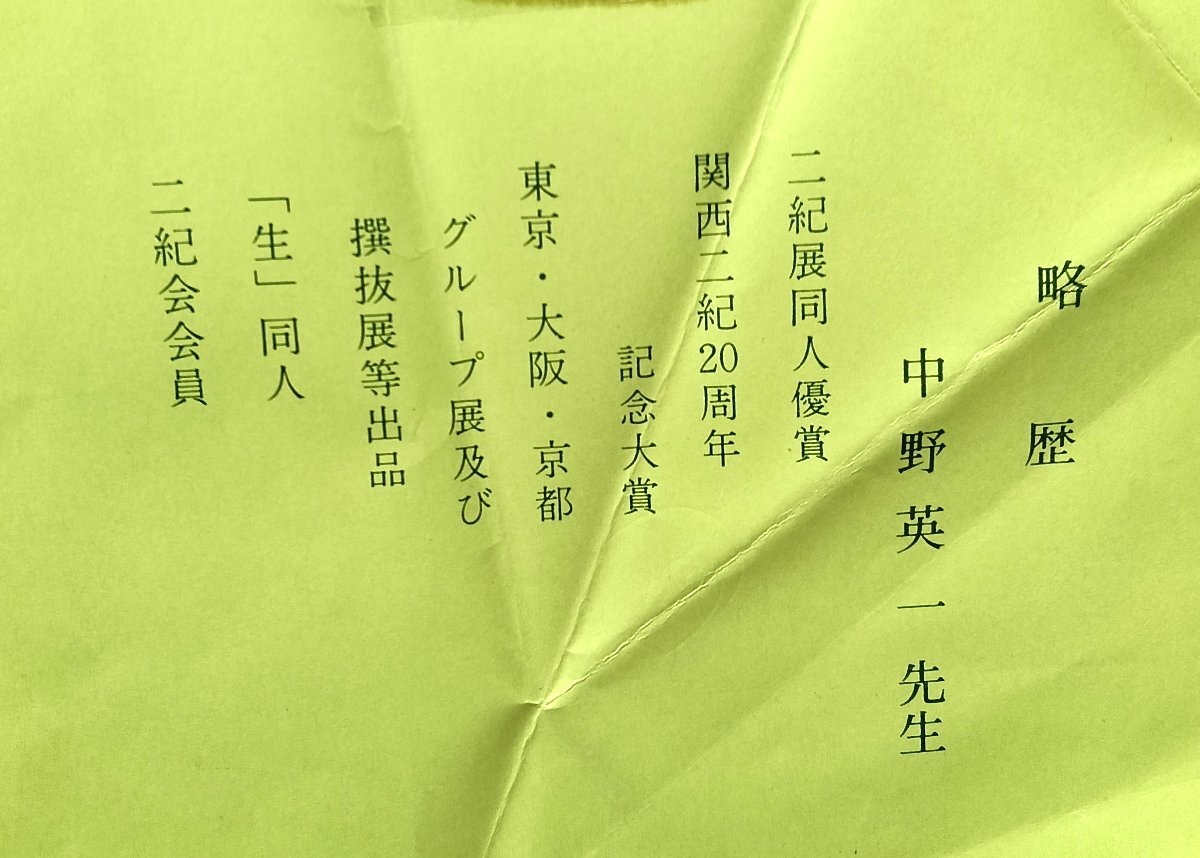 略歴
中野英一先生
二紀展同人優賞
関西二紀20周年
記念大賞
東京・大阪・京都
グループ展及び
撰抜展等出品
「生」同人
二紀会会員